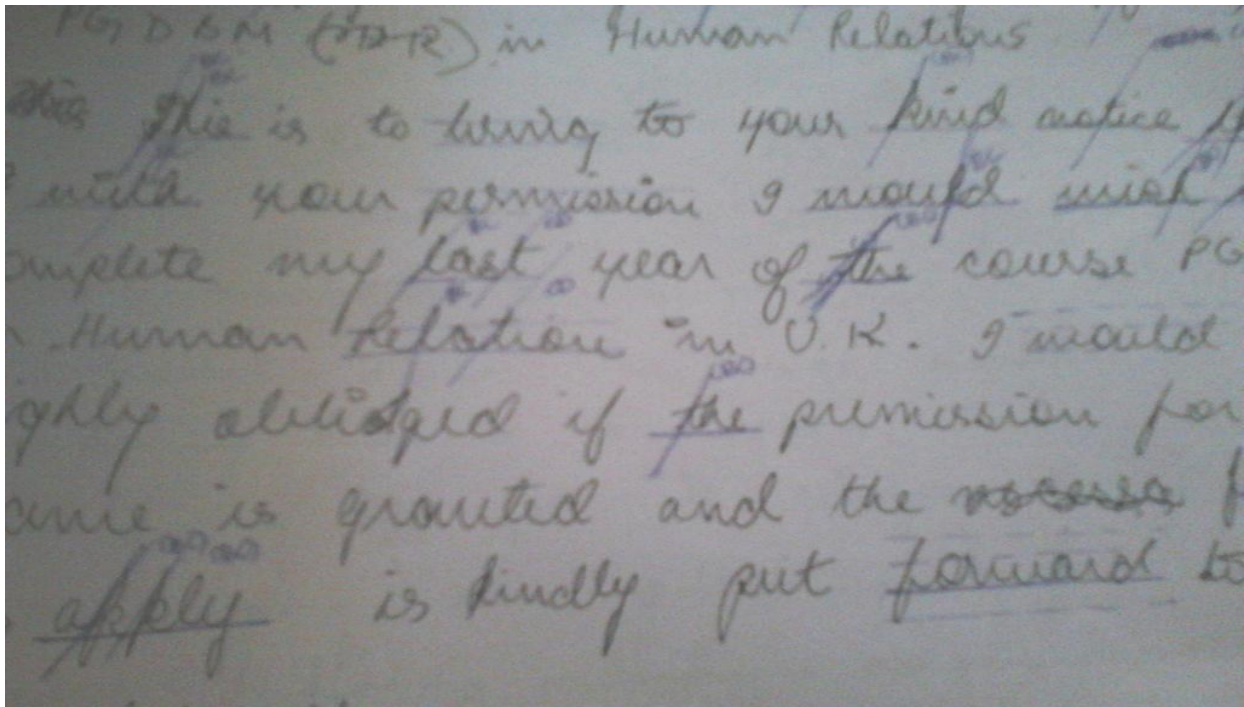 PGDBM (HR) in Human Relations
This is to bring to your kind notice
with your permission I would wish
omplete my last year of the course PG
Human Relation in U.K. I would
ghly abliged if the premission for
ame is granted and the
apply is kindly put forward to